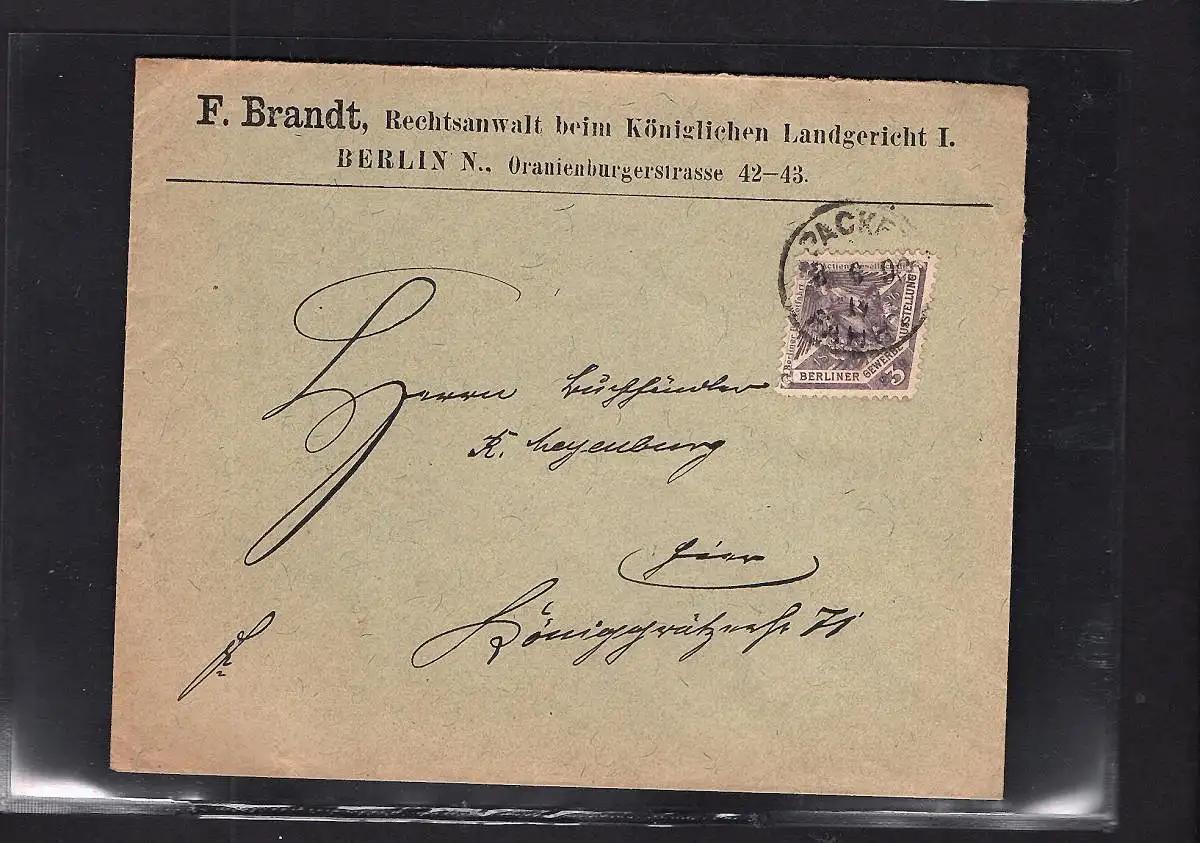 F. Brandt, Rechtsanwalt beim Königlichen Landgericht I.
BERLIN N., Oranienburgerstrasse 42–43.
PACKE
8 6 96
Berliner
BERLINER GEWERBE AUSSTELLUNG
3
Herrn Buchhändler
K. Meyenburg
hier
Königgrätzerstr 71